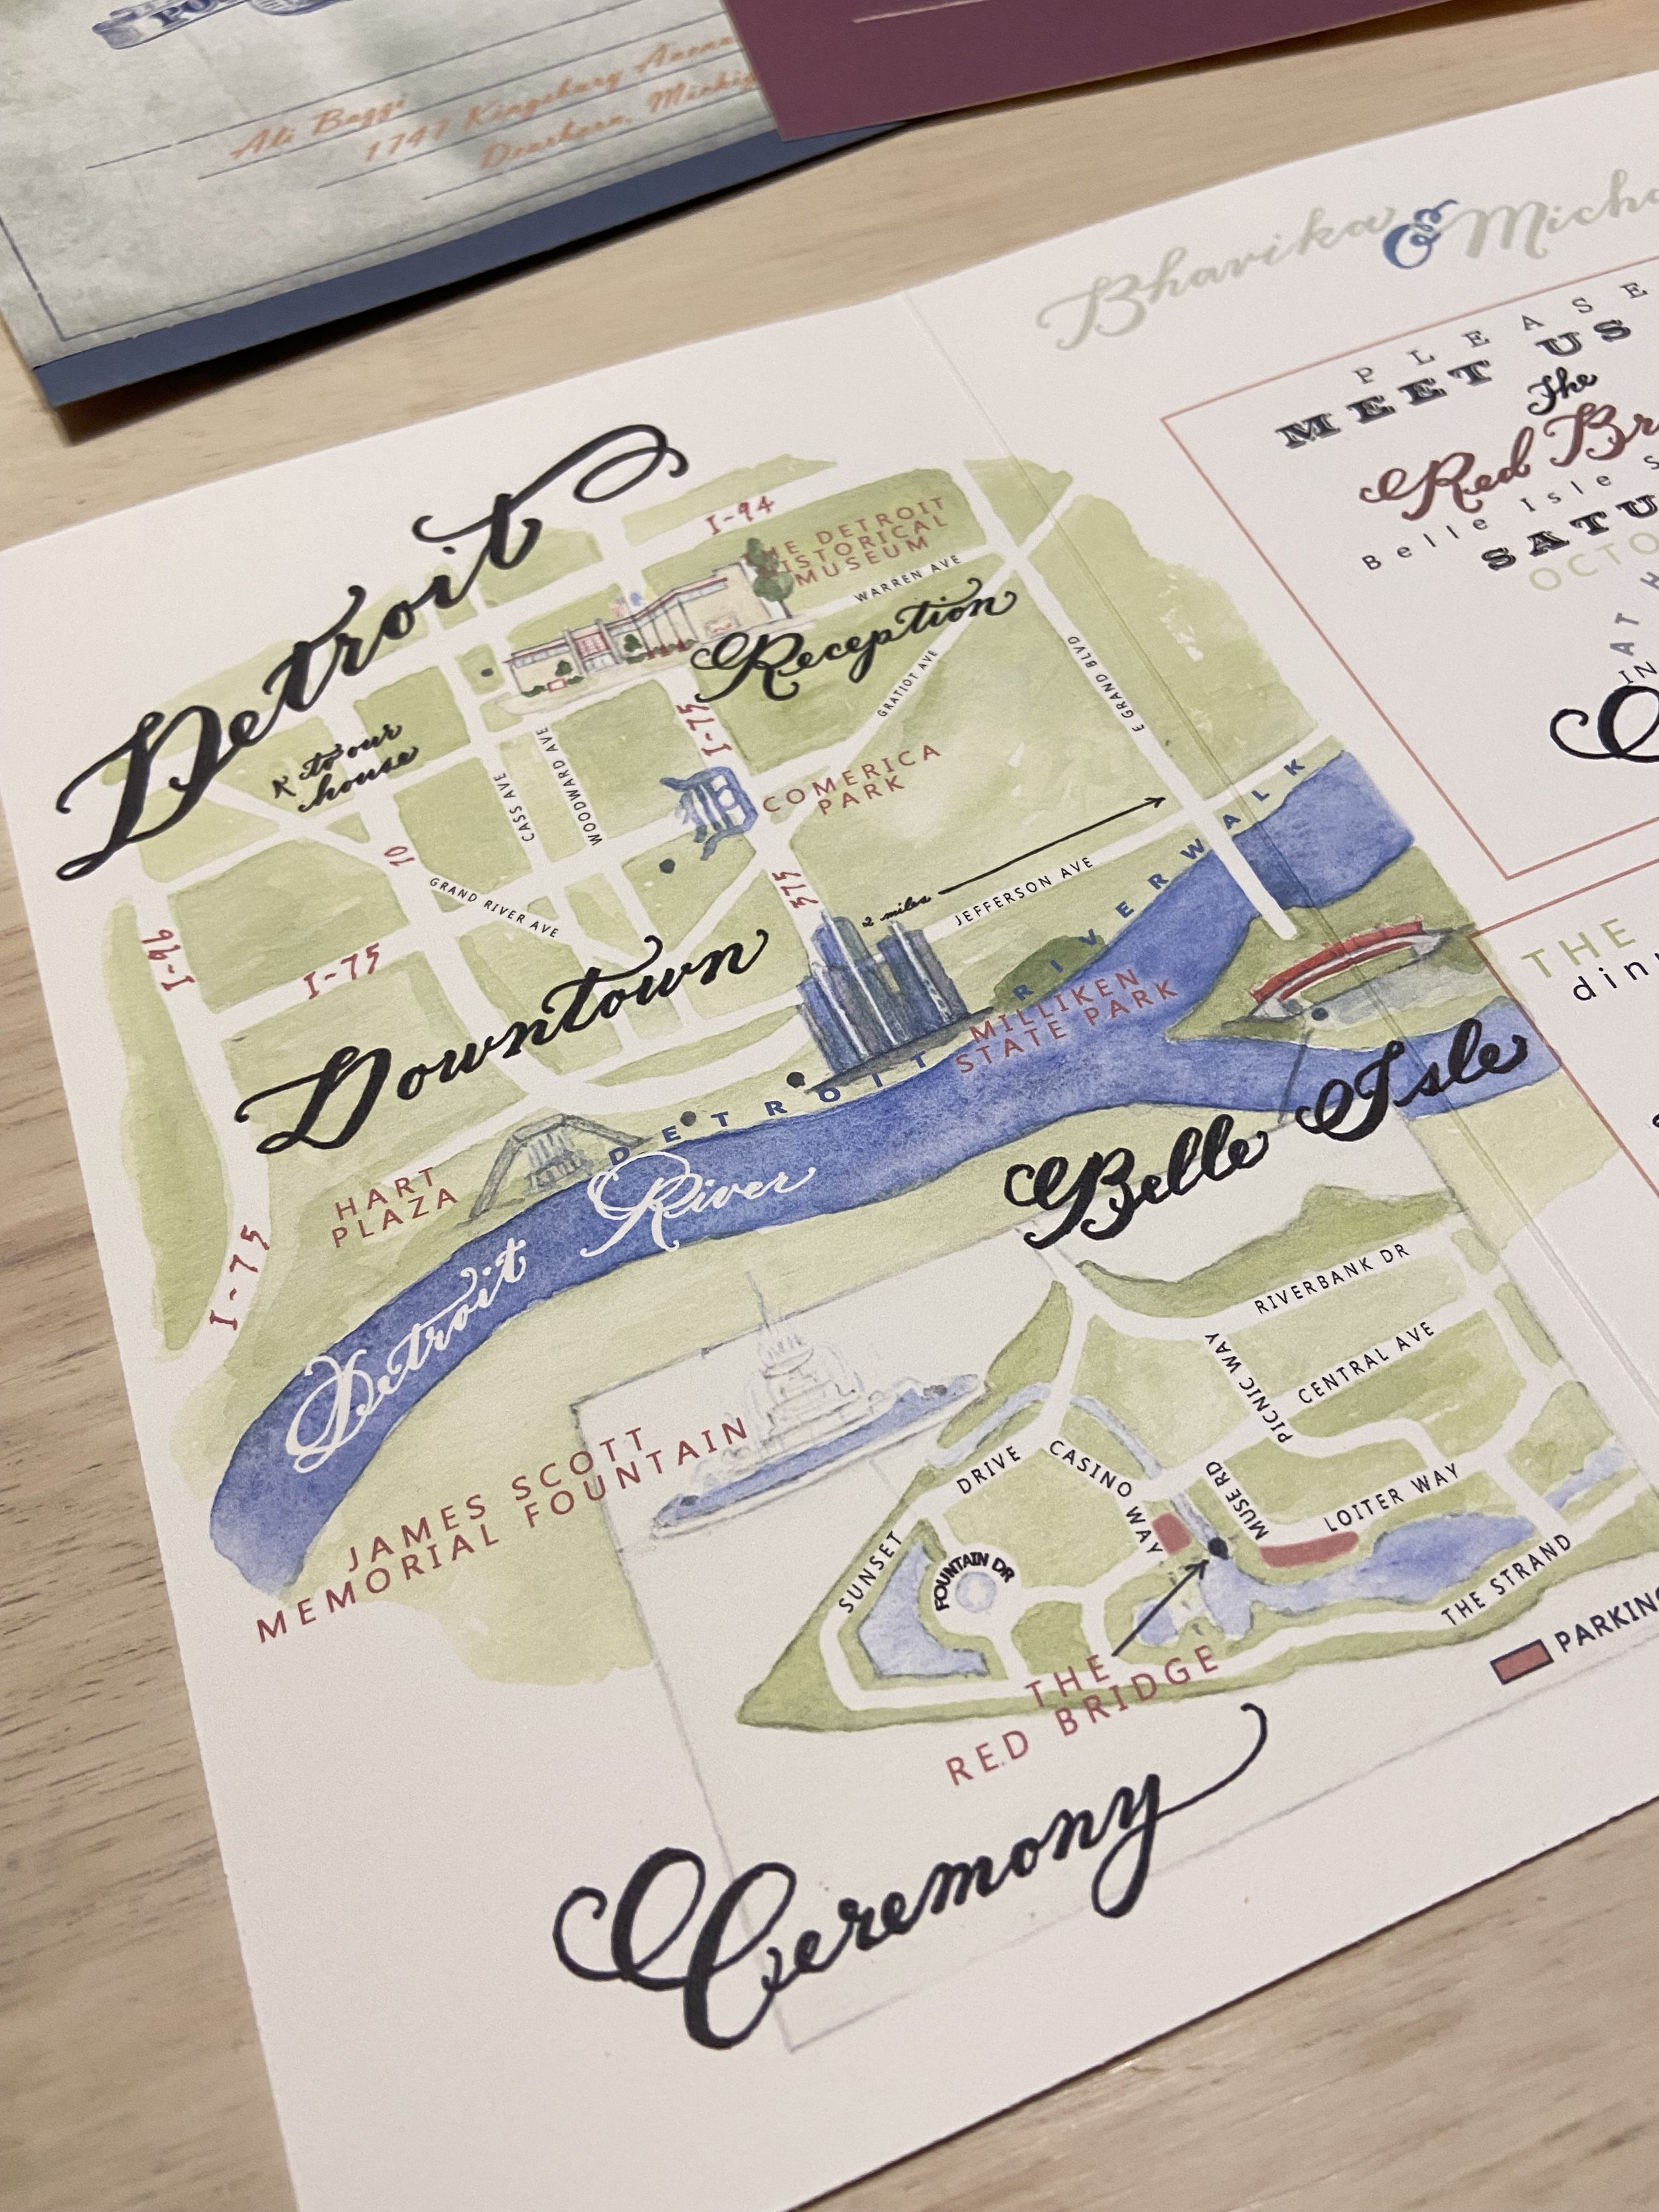 Ali Baggs
1747 Kingsbury
Dearborn,
Bhavika &
PLEASE
MEET US
The
Red
Belle Isle
AT
IN
THE
Detroit
I-94
THE DETROIT
HISTORICAL
MUSEUM
WARREN AVE
Reception
to our
house
I-75
GRATIOT AVE
E GRAND BLVD
CASS AVE
WOODWARD AVE
COMERICA
PARK
10
GRAND RIVER AVE
375
2 miles
JEFFERSON AVE
I-96
I-75
Downtown
DETROIT RIVERWALK
MILLIKEN
STATE PARK
HART
PLAZA
I-75
Detroit River
Belle Isle
RIVERBANK DR
PICNIC WAY
CENTRAL AVE
JAMES SCOTT
MEMORIAL FOUNTAIN
SUNSET DRIVE
CASINO WAY
MUSE RD
LOITER WAY
FOUNTAIN DR
THE STRAND
THE
RED BRIDGE
Ceremony